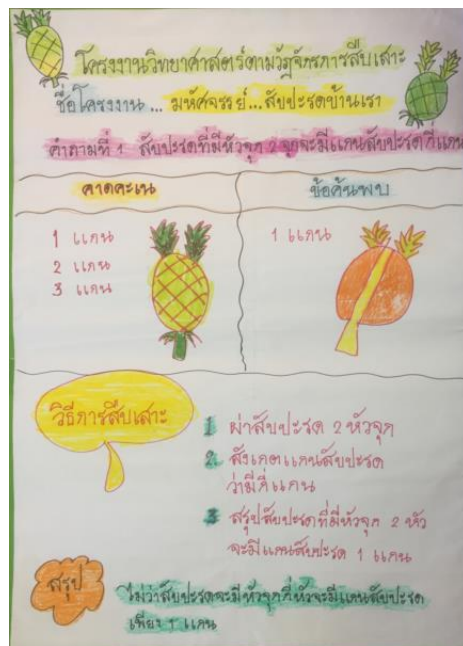 โครงงานวิทยาศาสตร์ตามวัฏจักรการสืบเสาะ
ชื่อโครงงาน... มหัศจรรย์...สับปะรดบ้านเรา
คำถามที่ 1 สับปะรดที่มีหัวจุก 2 จุกจะมีแกนสับปะรดกี่แกน
คาดคะเน
ข้อค้นพบ
1 แกน
2 แกน
3 แกน
1 แกน
วิธีการสืบเสาะ
1 ผ่าสับปะรด 2 หัวจุก
2. สังเกตแกนสับปะรด
ว่ามีกี่แกน
3 สรุปสับปะรดที่มีหัวจุก 2 หัว
จะมีแกนสับปะรด 1 แกน
สรุป
ไม่ว่าสับปะรดจะมีหัวจุกกี่หัวจะมีแกนสับปะรด
เพียง 1 แกน